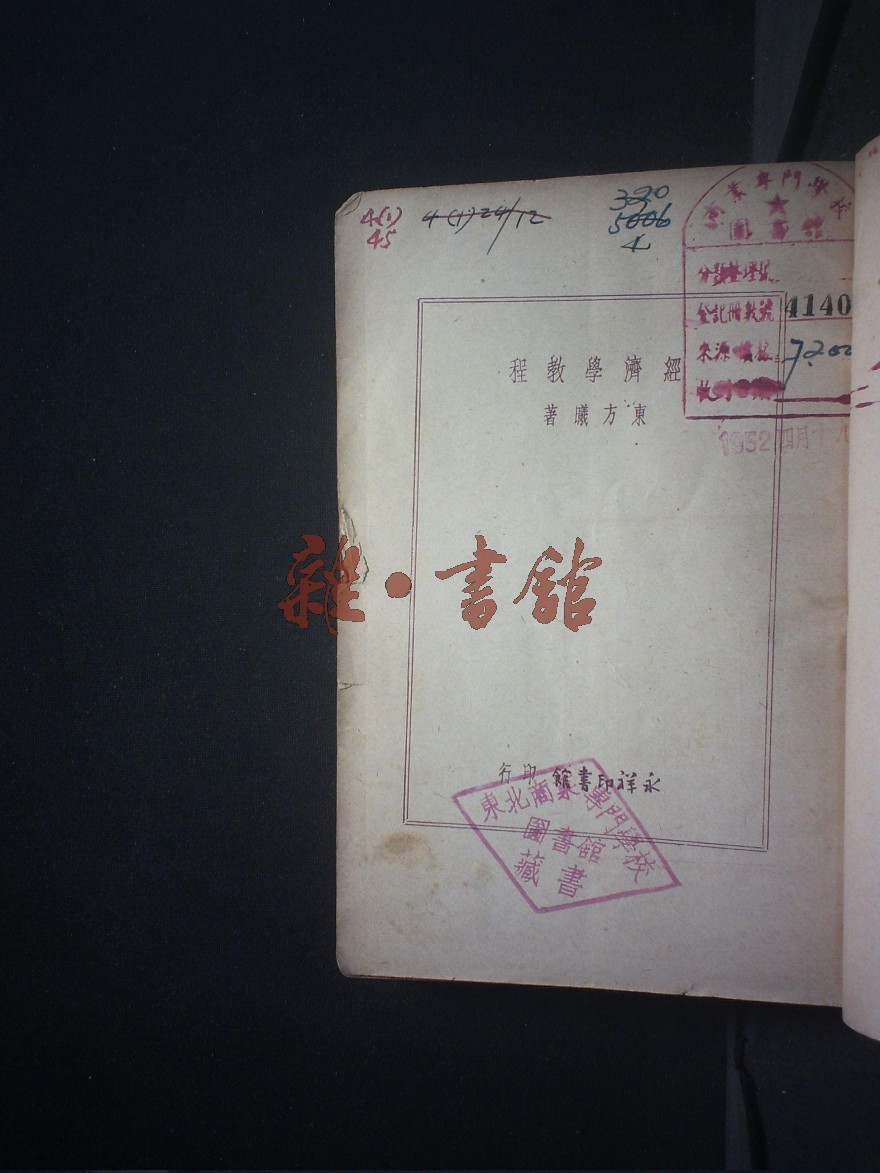 4(1)
45
4(1)24/12
390
5006
業專門學校
圖書館
分類整理號
登記冊數號 4140
來源價格 7200
1952四月十
程教學濟經
著曦方東
雜·書館
行印館書印祥永
東北商業專門學校
圖書館
藏書